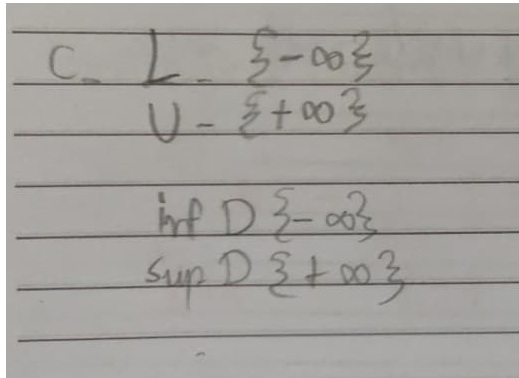 C- L- {-∞}
U- {+∞}
inf D {-∞}
sup D {+∞}